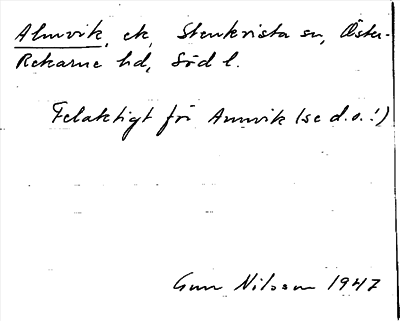 Almvik, ek, Stenkvista sn, Öster-
Rekarne hd, Söd l.
Felaktigt för Ammvik (se d.o.!)
Gun Nilsson 1947